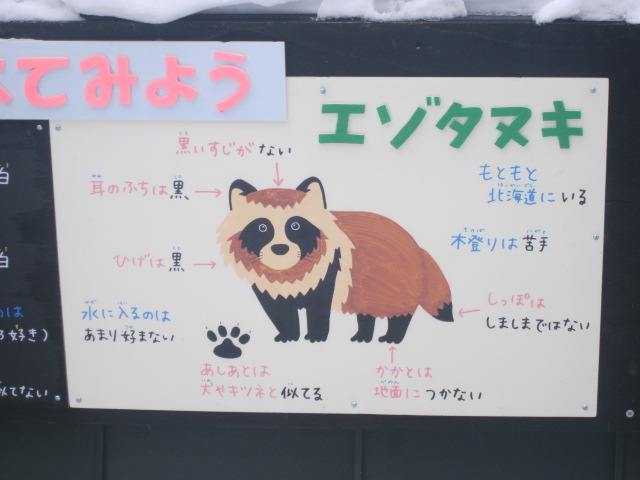 てみよう
エゾタヌキ
黒いすじがない
耳のふちは黒
ひげは黒
水に入るのは
あまり好まない
あしあとは
犬やキツネと似てる
かかとは
地面につかない
しっぽは
しましまではない
もともと
北海道にいる
木登りは苦手
泊
泊
のは
好き)
似てない